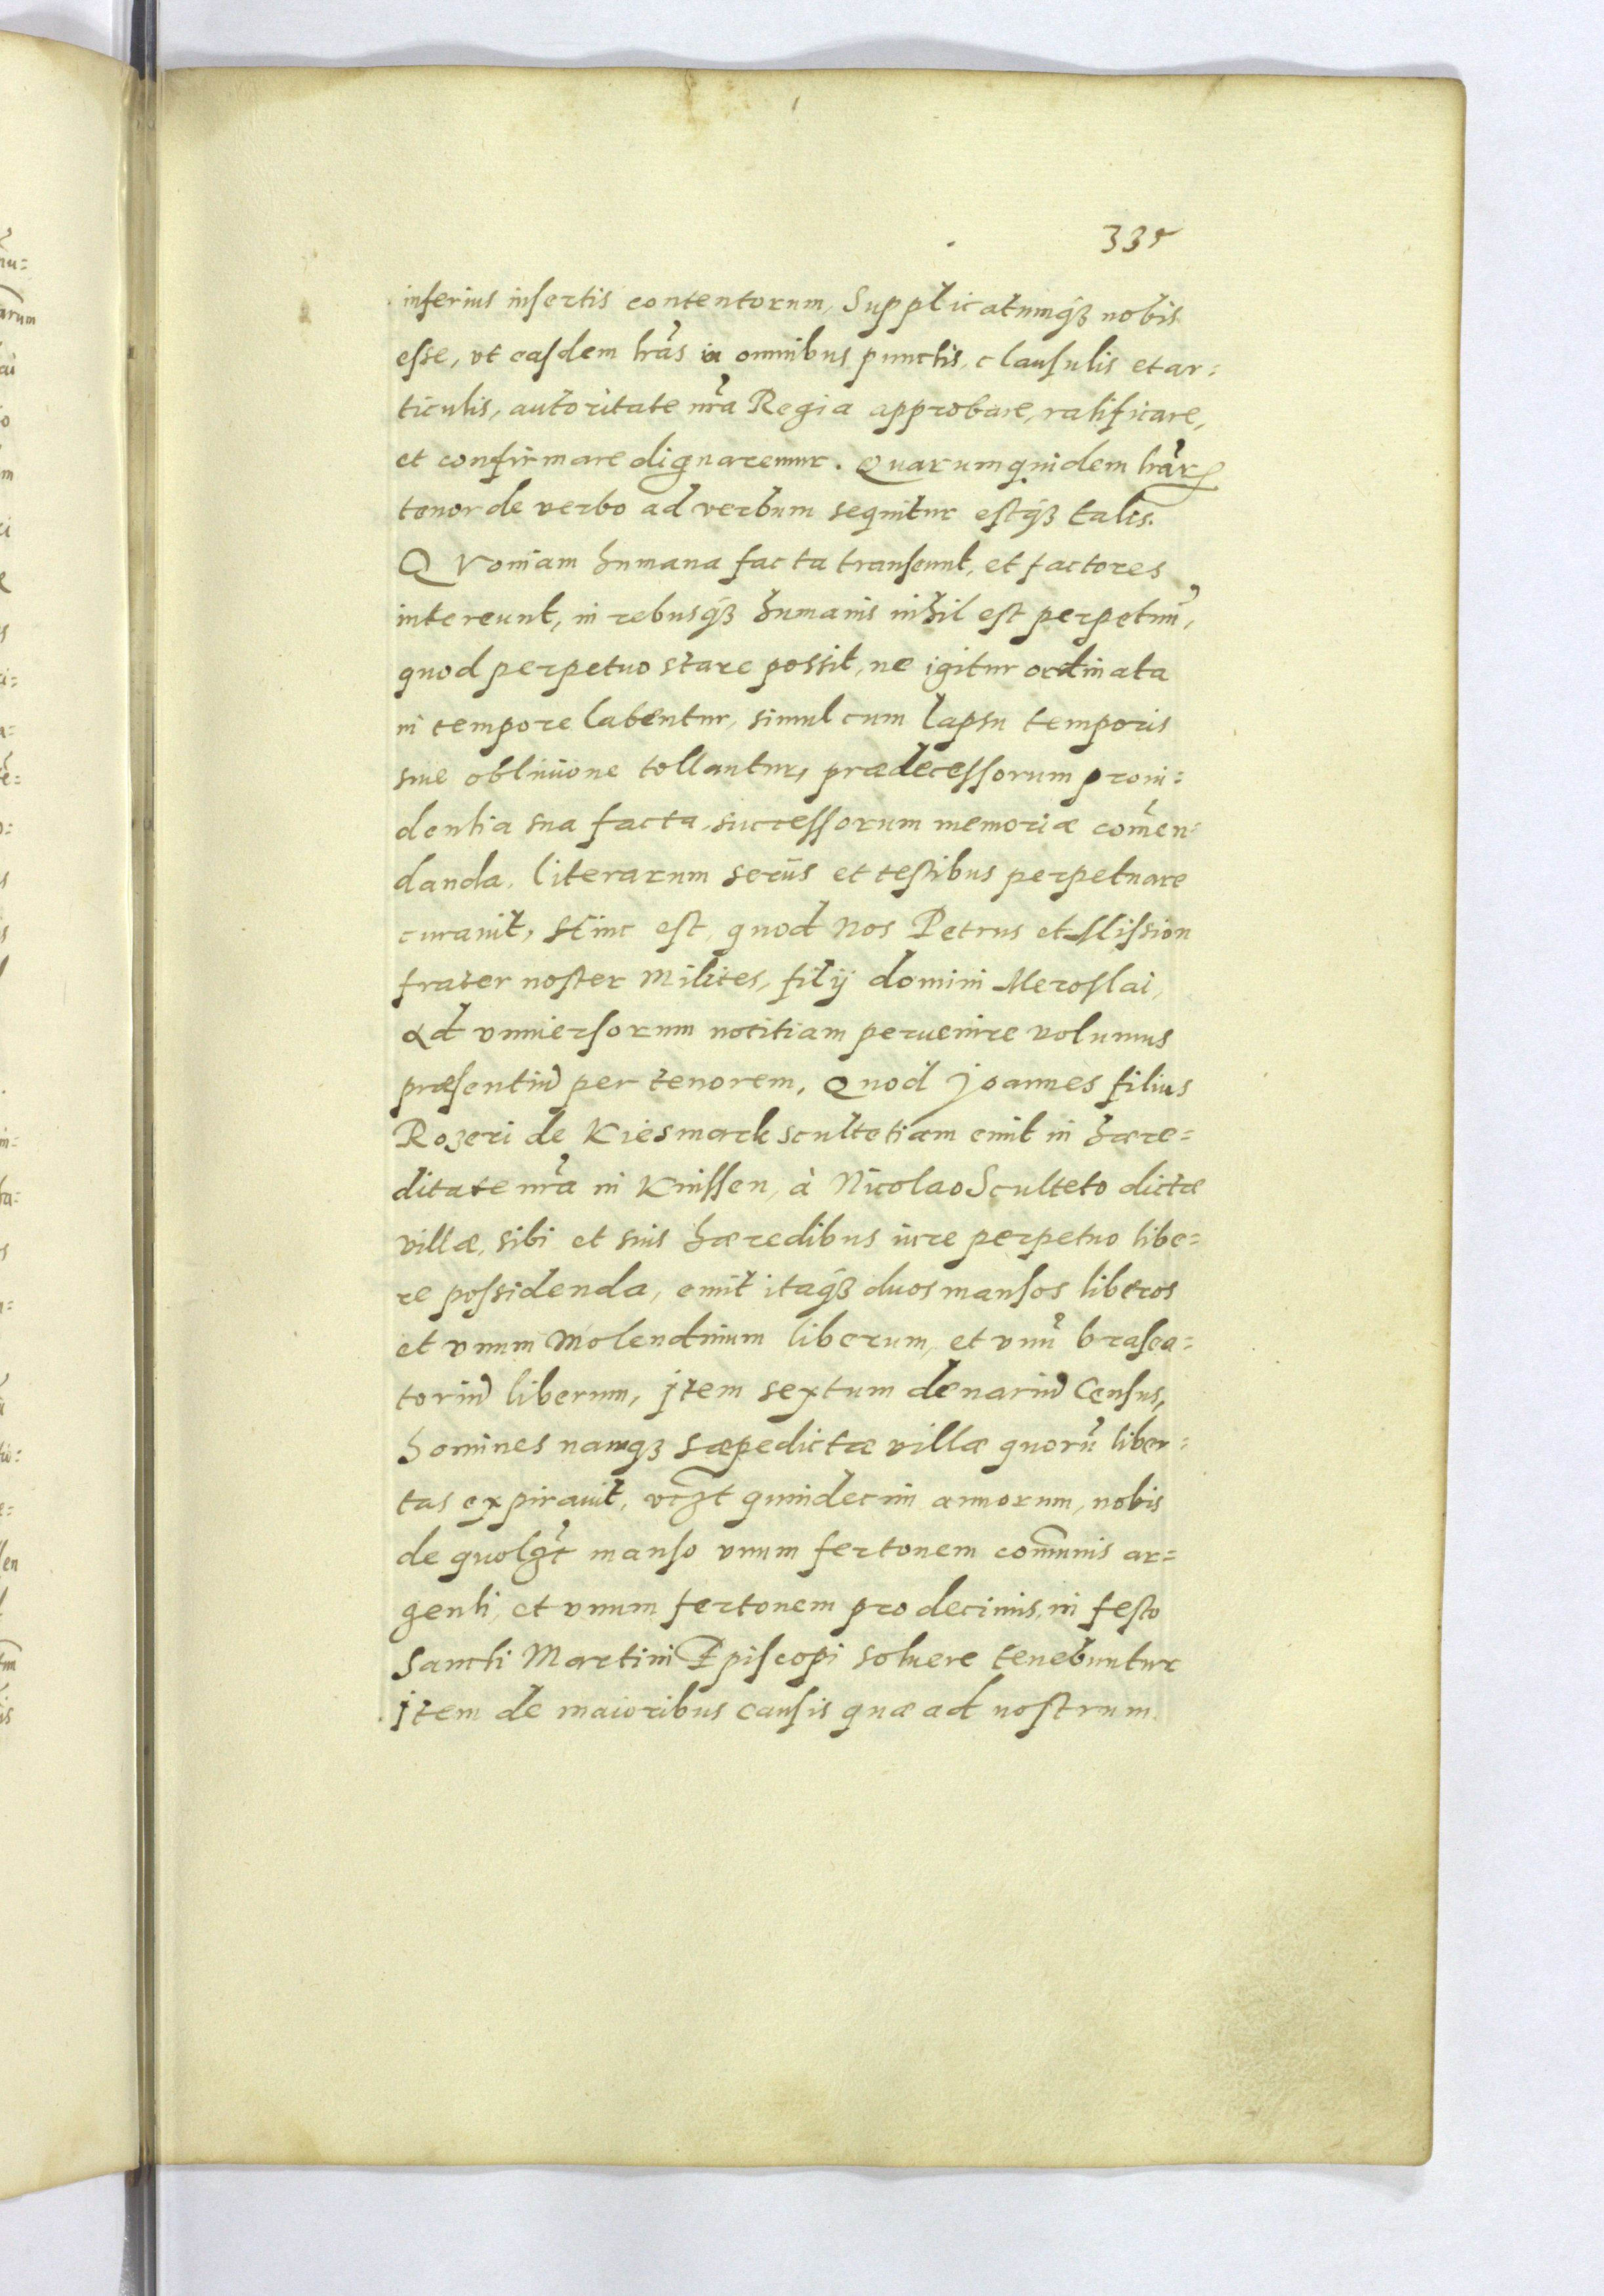 335
inferius insertis contentorum, Supplicatumq3 nobis
esse, vt easdem lr̃as in omnibus punctis, clausulis et ar=
ticulis, autoritate nr̃a Regia approbare, ratificare,
et confirmare dignaremur. Quarum quidem lr̃arꝝ
tenor de verbo ad verbum sequitur estq3 talis.
QVoniam humana facta transeunt, et factores
intereunt, in rebusq3 humanis nihil est perpetuũ,
quod perpetuo stare possit, ne igitur ordinata
in tempore labentur, simul cum lapsu temporis
siue obliuione tollantur, prædecessorum proui=
dentia sua facta, successorum memoriæ com̃en=
danda, literarum serijs et testibus perpetuare
curauit, Hinc est, quod Nos Petrus et Mission
frater noster Milites, filij domini Meroslai,
Ad vniuersorum notitiam peruenire volumus
præsentiũ per tenorem, Quod Joannes filius
Rozeri de Kiesmark scultetiam emit in hære=
ditate nr̃a in Knissen, à Nicolao Sculteto dictæ
villæ, sibi et suis hæredibus iure perpetuo libe=
re possidenda, emit itaq3 duos mansos liberos
et vnum Molendinum liberum, et vnũ brasea=
toriũ liberum, jtem sextum denariũ Census,
homines namq3 sæpedictæ villæ quorũ liber=
tas expirauit, vcz̃t quindecim annorum, nobis
de quolz̃t manso vnum fertonem com̃unis ar=
genti, et vnum fertonem pro decimis, in festo
Sancti Martini Episcopi soluere tenebuntur
jtem de maioribus causis quæ ad nostrum